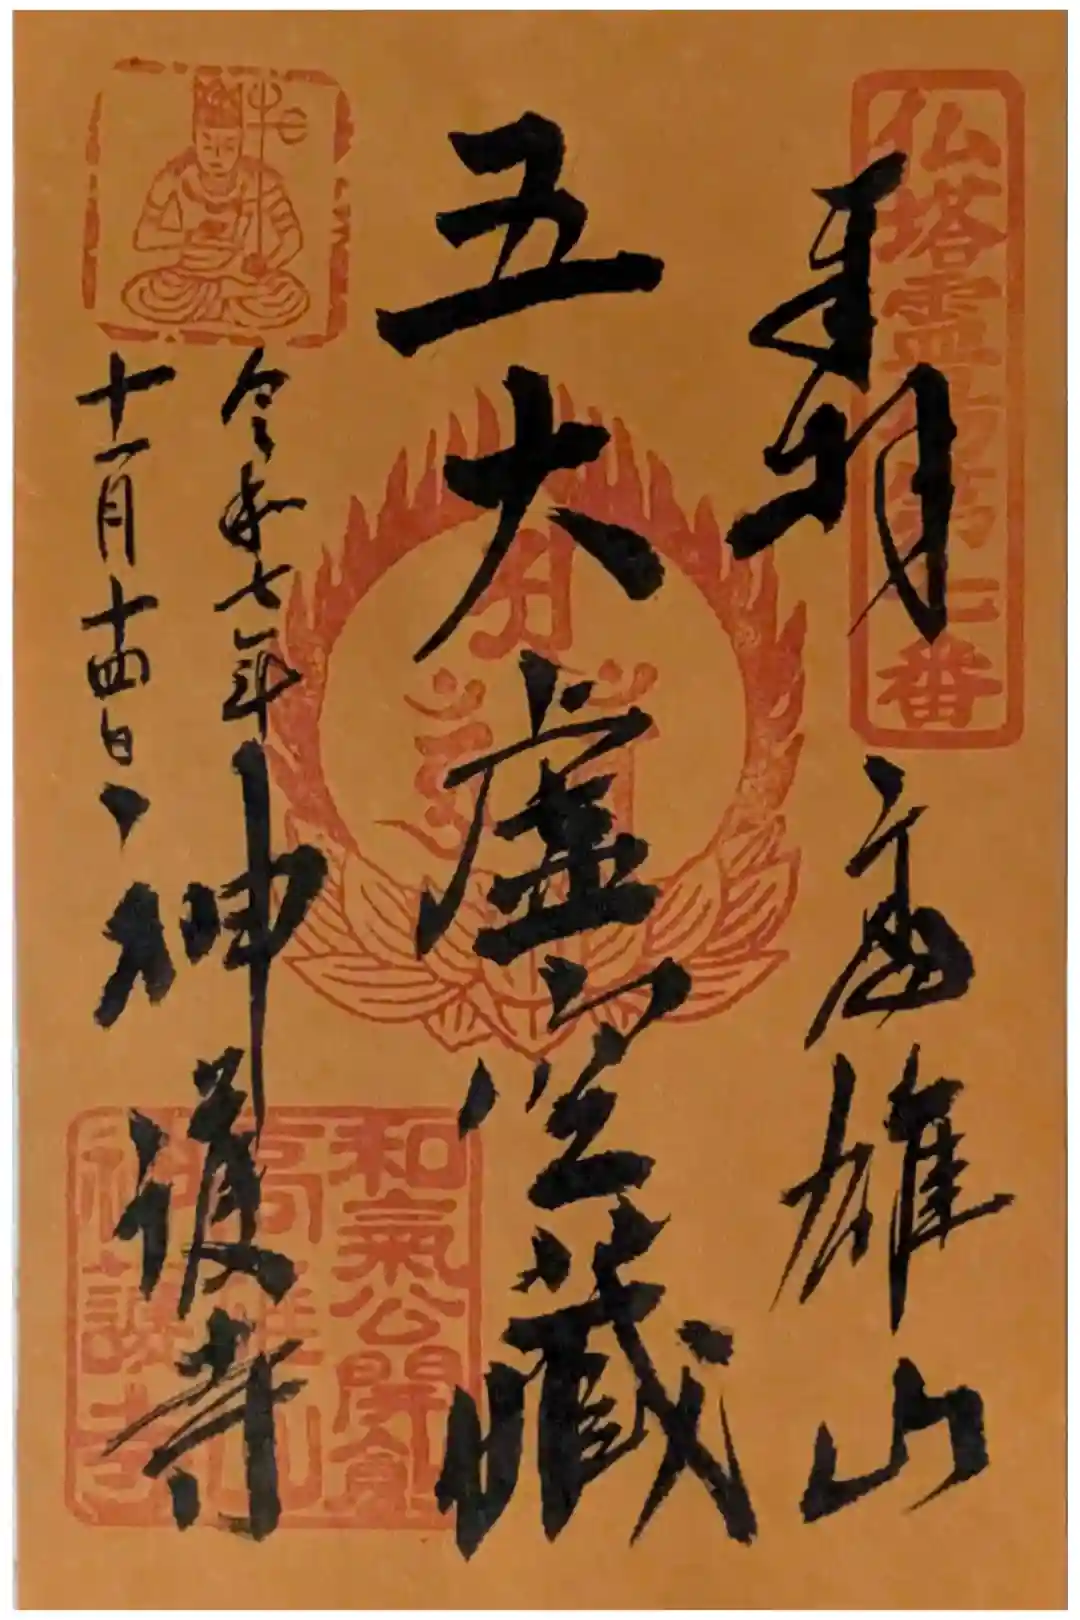 奉拝
仏塔霊場第二番
高雄山
五大虚空蔵
令和七年
十一月十四日
神護寺
和氣公開創
高雄山
神護寺